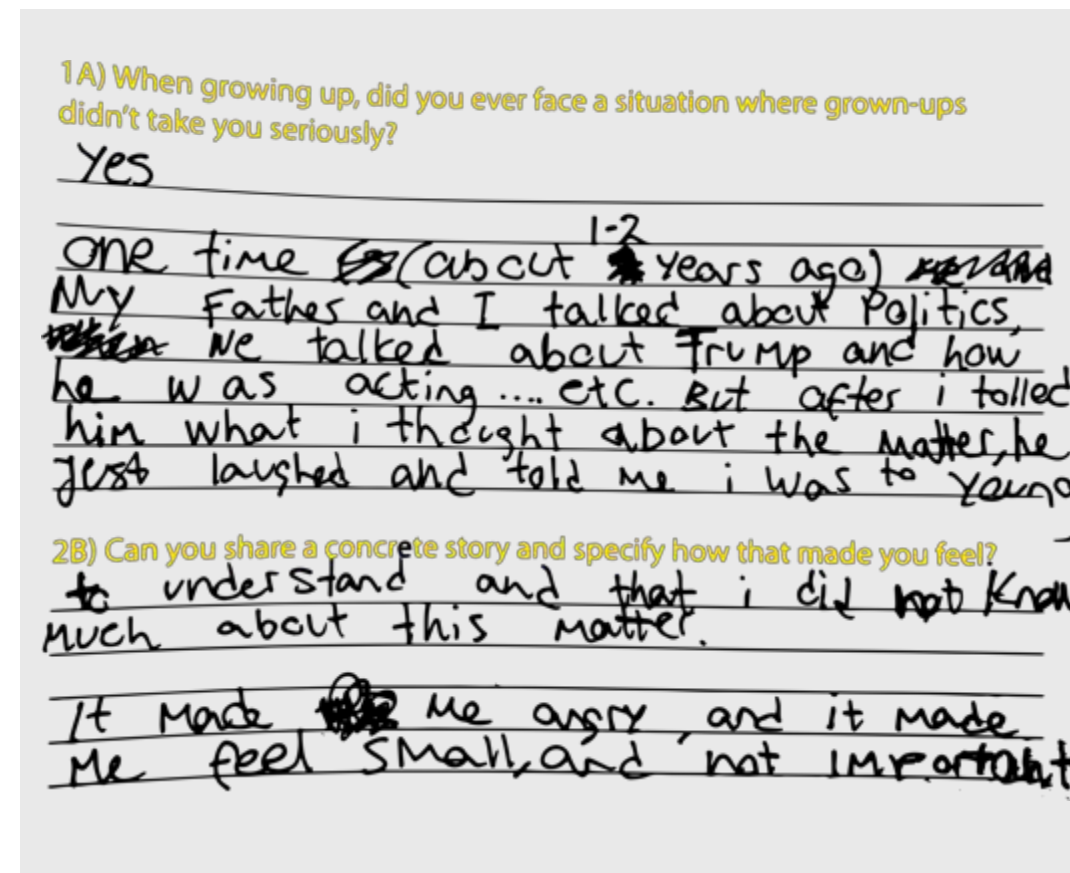 1A) When growing up, did you ever face a situation where grown-ups
didn't take you seriously?
Yes
1-2
one time (about years ago)
My Father and I talked about Politics,
We talked about Trump and how
he was acting .... etc. But after i tolled
him what i thought about the matter, he
Just laughed and told me i was to young
2B) Can you share a concrete story and specify how that made you feel?
to understand and that i did not Know
much about this matter.
It made me angry, and it made
me feel small, and not important